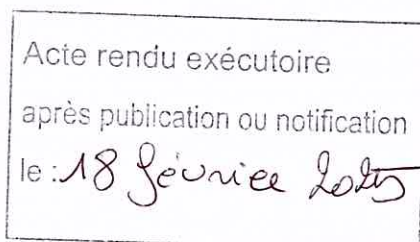 Acte rendu exécutoire
après publication ou notification
le : 18 février 2025